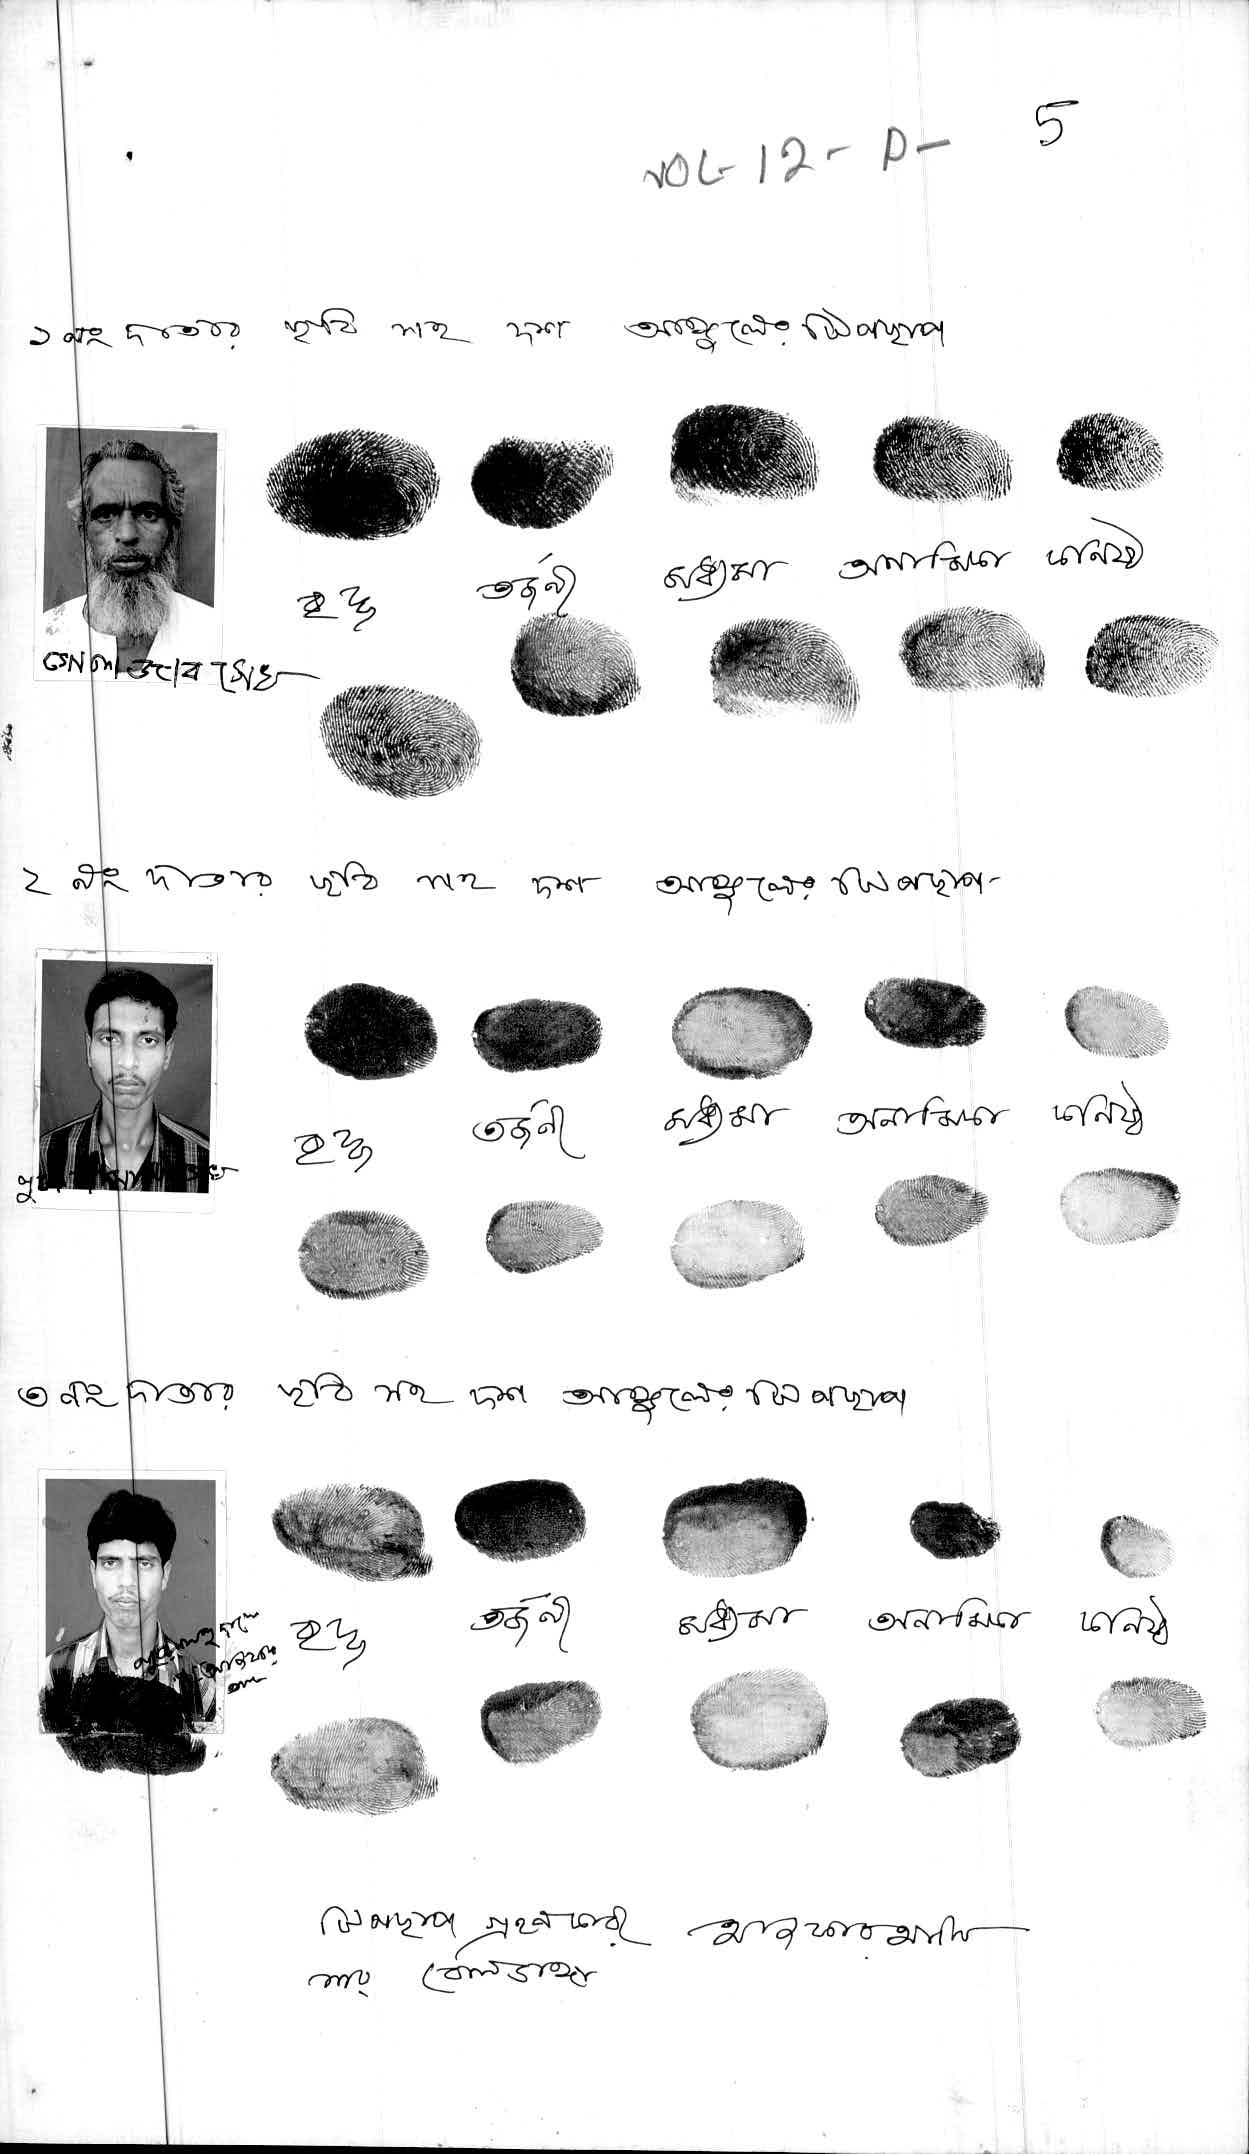 VOL-12-P- 5
১ নং দাতার ছবি সহ দশ আঙ্গুলের টিপছাপ
বৃদ্ধ তর্জনী মধ্যমা অনামিকা কনিষ্ঠ
সেখ
২ নং দাতার ছবি সহ দশ আঙ্গুলের টিপছাপ-
বৃদ্ধ তর্জনী মধ্যমা অনামিকা কনিষ্ঠ
৩ নং দাতার ছবি সহ দশ আঙ্গুলের টিপছাপ
বৃদ্ধ তর্জনী মধ্যমা অনামিকা কনিষ্ঠ
টিপছাপ গ্রহনকারী
সাং